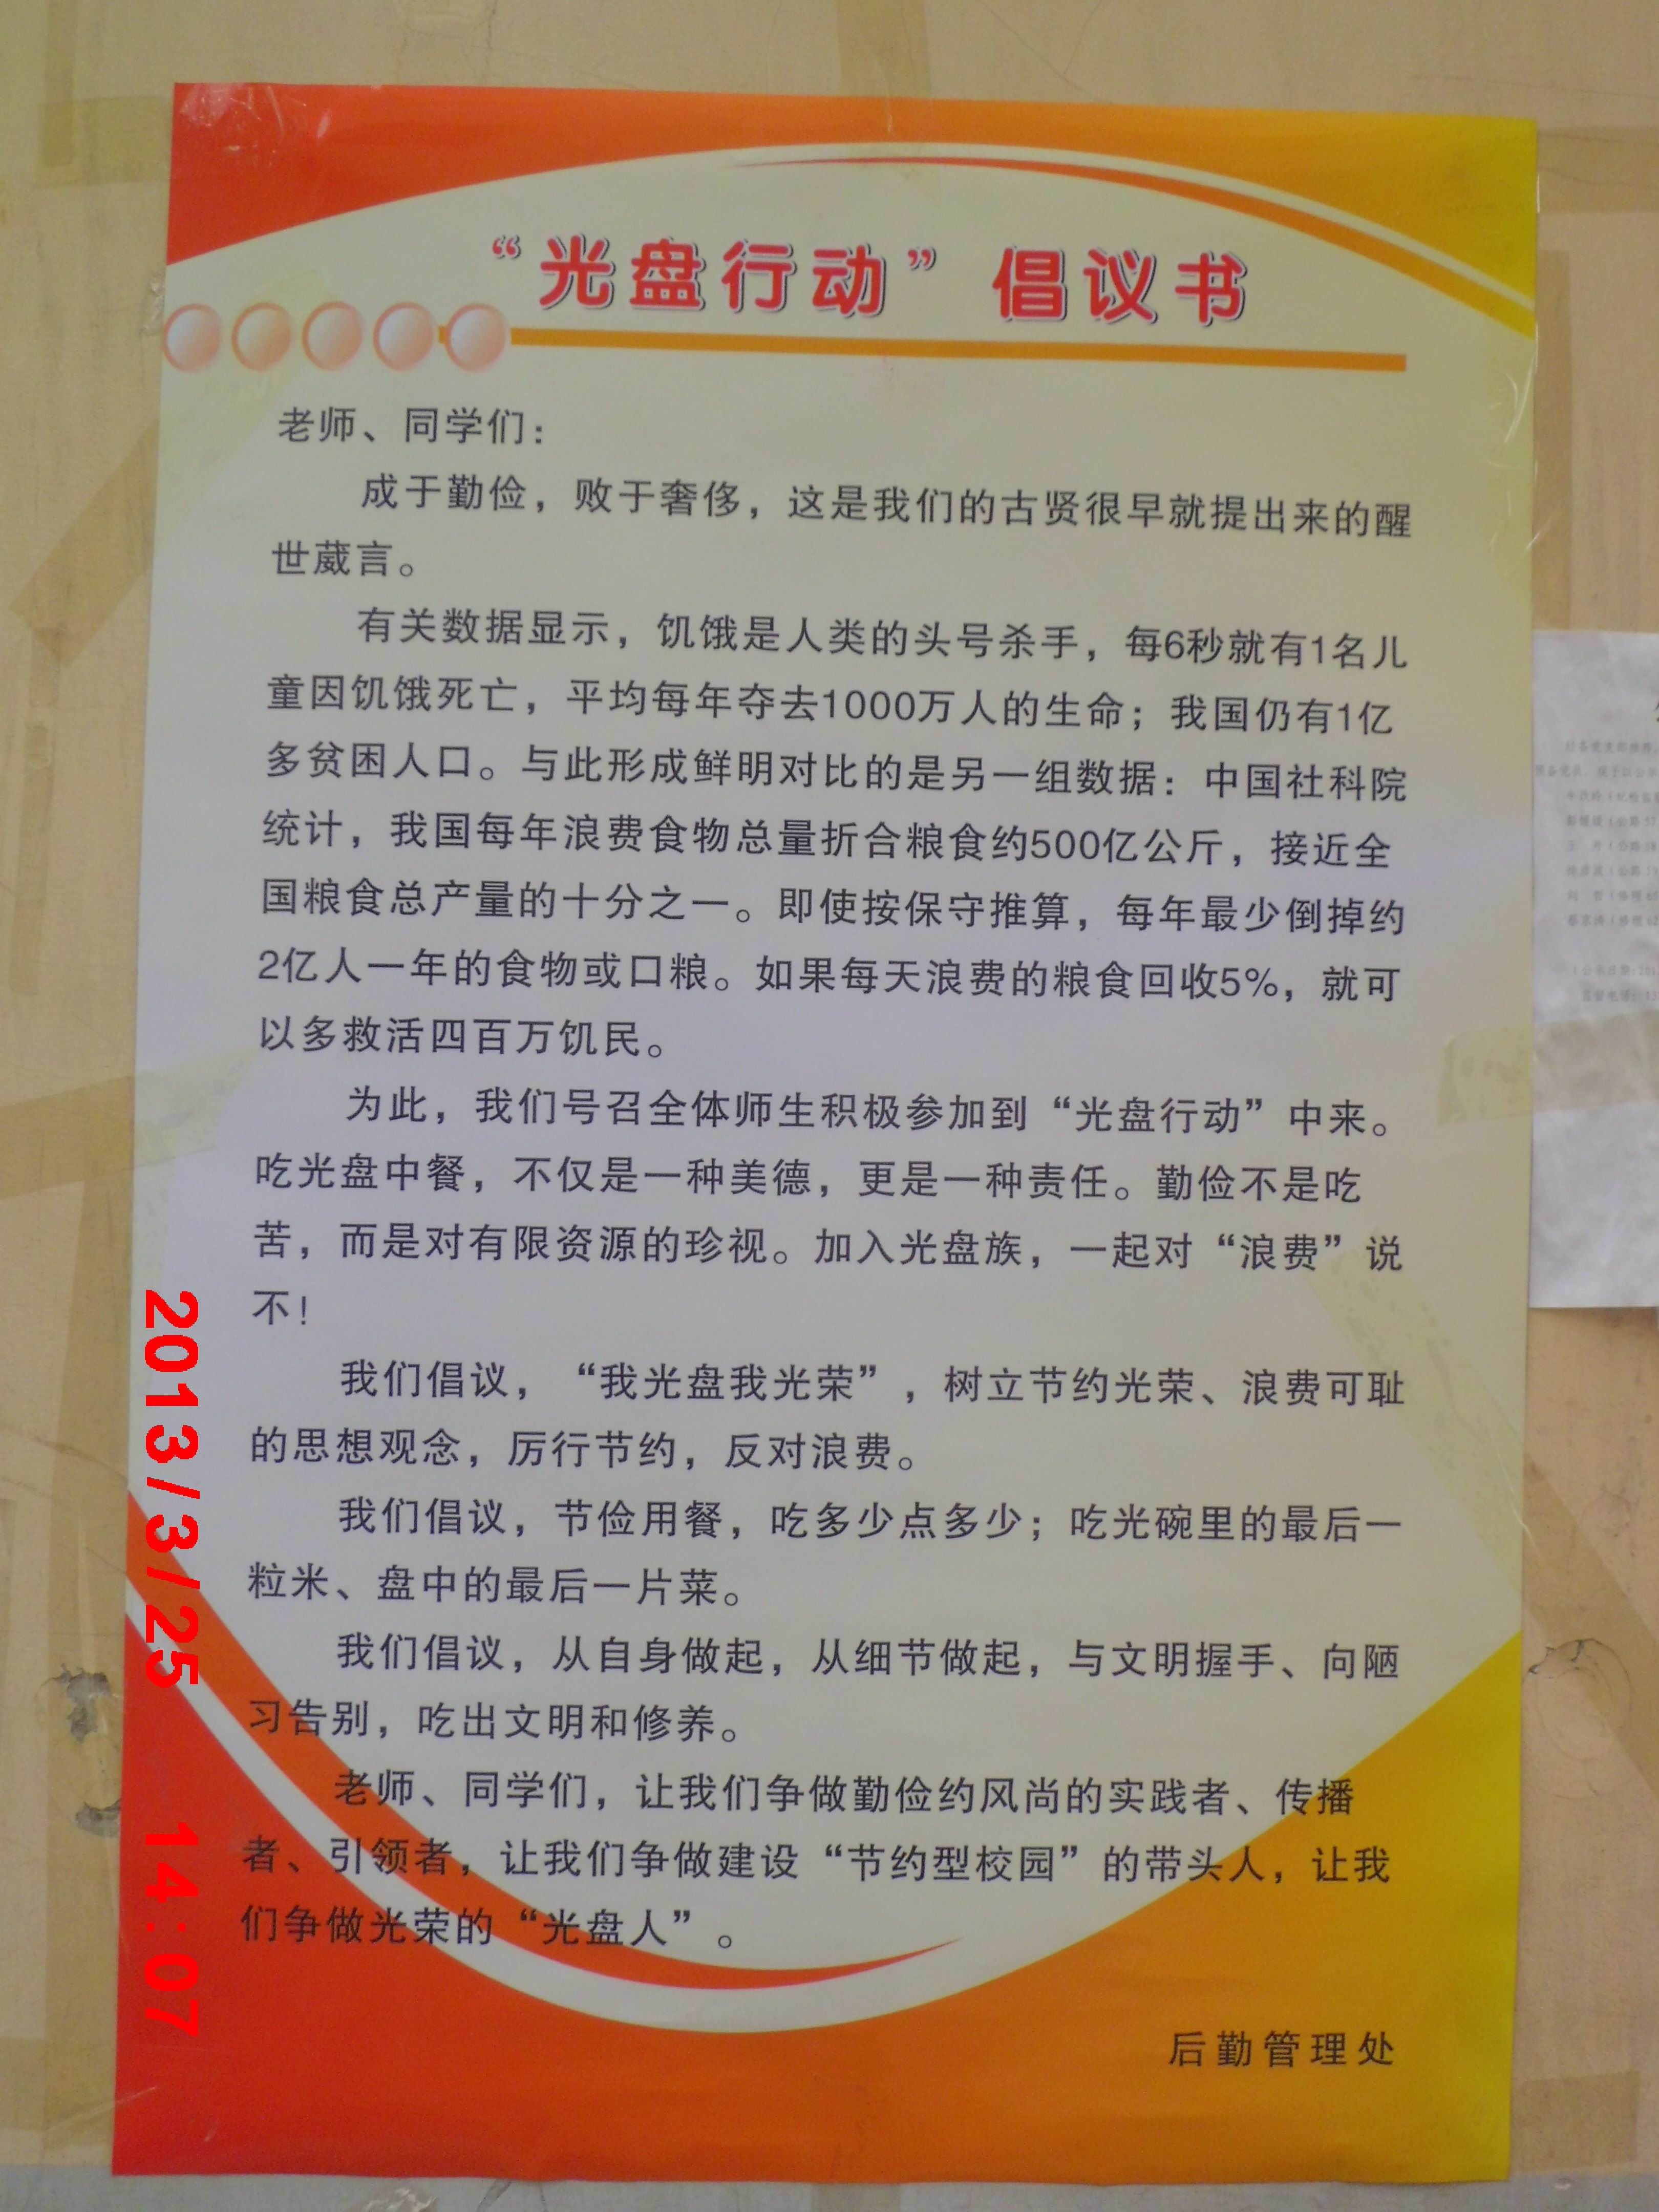 “光盘行动”倡议书
老师、同学们：
成于勤俭，败于奢侈，这是我们的古贤很早就提出来的醒
世葳言。
有关数据显示，饥饿是人类的头号杀手，每6秒就有1名儿
童因饥饿死亡，平均每年夺去1000万人的生命；我国仍有1亿
多贫困人口。与此形成鲜明对比的是另一组数据：中国社科院
统计，我国每年浪费食物总量折合粮食约500亿公斤，接近全
国粮食总产量的十分之一。即使按保守推算，每年最少倒掉约
2亿人一年的食物或口粮。如果每天浪费的粮食回收5%，就可
以多救活四百万饥民。
为此，我们号召全体师生积极参加到“光盘行动”中来。
吃光盘中餐，不仅是一种美德，更是一种责任。勤俭不是吃
苦，而是对有限资源的珍视。加入光盘族，一起对“浪费”说
不！
我们倡议，“我光盘我光荣”，树立节约光荣、浪费可耻
的思想观念，厉行节约，反对浪费。
我们倡议，节俭用餐，吃多少点多少；吃光碗里的最后一
粒米、盘中的最后一片菜。
我们倡议，从自身做起，从细节做起，与文明握手、向陋
习告别，吃出文明和修养。
老师、同学们，让我们争做勤俭约风尚的实践者、传播
者、引领者，让我们争做建设“节约型校园”的带头人，让我
们争做光荣的“光盘人”。
后勤管理处
2013/3/25 14:07